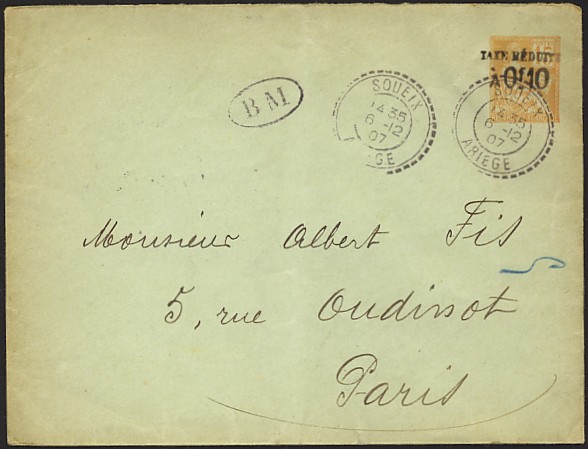 TAXE RÉDUITE
À 0f10
BM
SOUEIX
14 35
6 -12
07
GE
SOUEIX
14 35
6 -12
07
ARIEGE
Monsieur Albert Fis
5, rue Oudinot
Paris